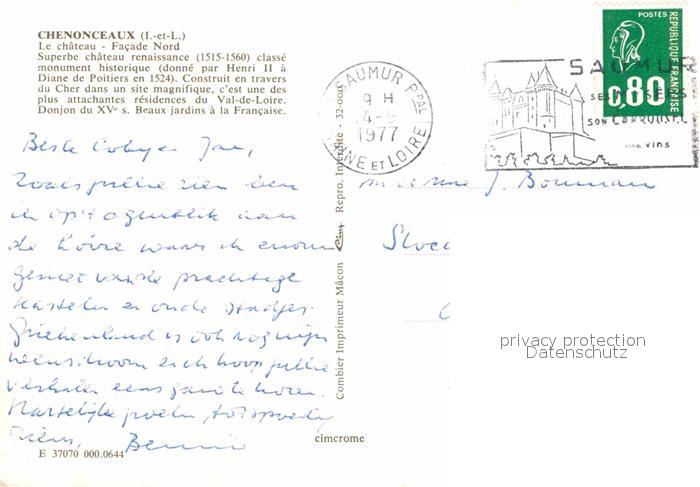 CHENONCEAUX (I.-et-L.)
Le château - Façade Nord
Superbe château renaissance (1515-1560) classé
monument historique (donné par Henri II à
Diane de Poitiers en 1524). Construit en travers
du Cher dans un site magnifique, c'est une des
plus attachantes résidences du Val-de-Loire.
Donjon du XVe s. Beaux jardins à la Française.
Beste Jan,
Zoals jullie zien ben
ik op 't ogenblik aan
de Loire waar ik enorm
geniet van de prachtige
kastelen en oude stadjes.
Griekenland is ook nog mijn
en ik hoop jullie
verhalen eens te horen.
Hartelijke groeten, tot spoedig
ziens,
E 37070 000.0644
cimcrome
Combier Imprimeur Mâcon Cim Repro. Interdite - 32-009
SAUMUR Ppal
9 H
4-9
1977
MAINE ET LOIRE
SAUMUR
SES
SON CARROUSEL
SES VINS
POSTES
REPUBLIQUE FRANÇAISE
0,80
M. et Mme J. Bouman
privacy protection
Datenschutz